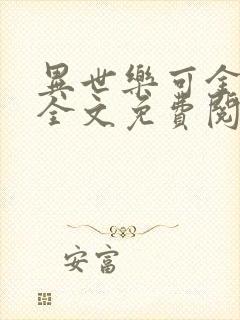 異世樂可全
全文免費閱
安富